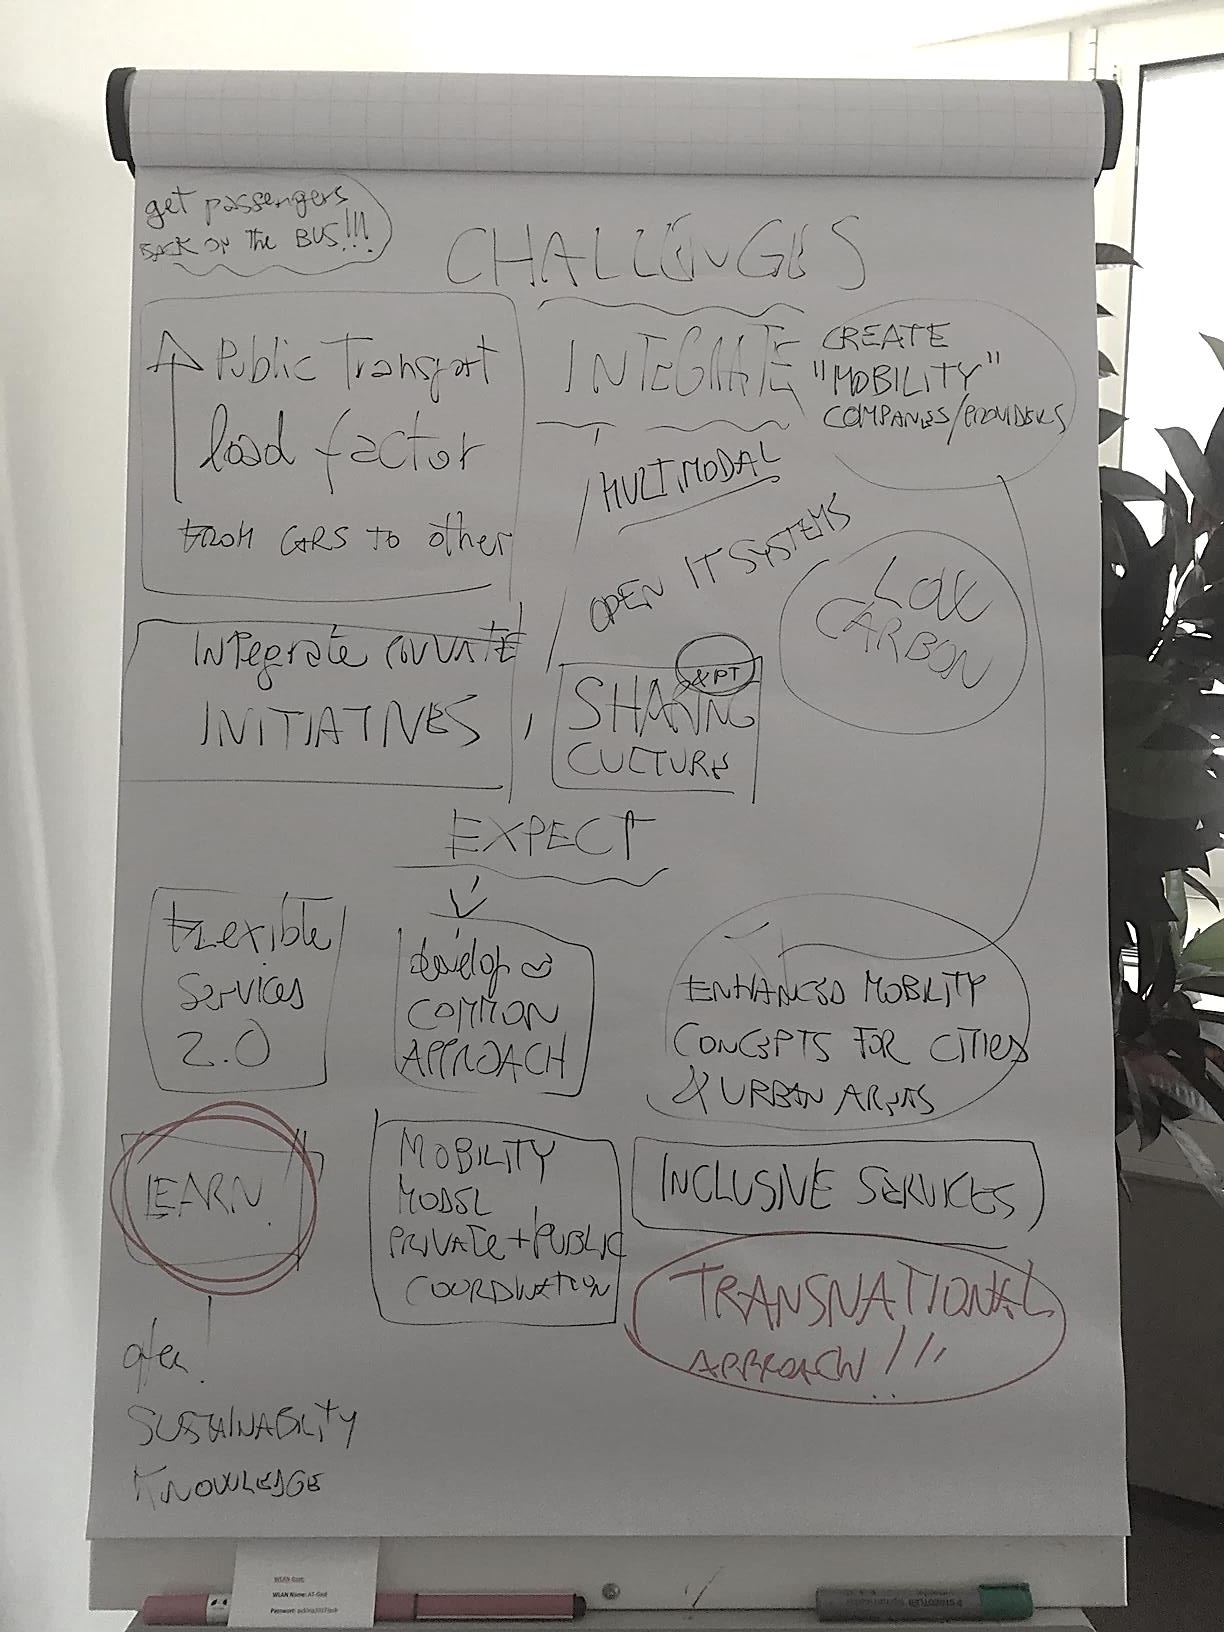 get passengers
BACK ON the BUS!!!
CHALLENGES
Public Transport
load factor
FROM CARS TO other
INTEGRATE
CREATE
"MOBILITY"
COMPANIES/PROVIDERS
MULTIMODAL
OPEN IT SYSTEMS
LOW
CARBON
INTegrate PRIVATE
INITIATIVES
& PT
SHARING
CULTURE
EXPECT
FLexible
Services
2.0
develop
COMMON
APPROACH
ENHANCED MOBILITY
CONCEPTS FOR CITIES
& URBAN AREAS
LEARN!
MOBILITY
MODEL
PRIVATE + PUBLIC
COORDINATION
INCLUSIVE SERVICES
TRANSNATIONAL
APPROACH!!!
SUSTAINABILITY
KNOWLEDGE
WLAN Gast:
WLAN Name: AT-Gast
STAEDTLER